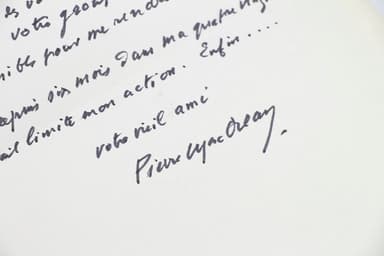 votre group
pour me rend
depuis six mois dans ma quatre ving
limite mon action. Enfin....
votre vieil ami
Pierre Mac Orlan.